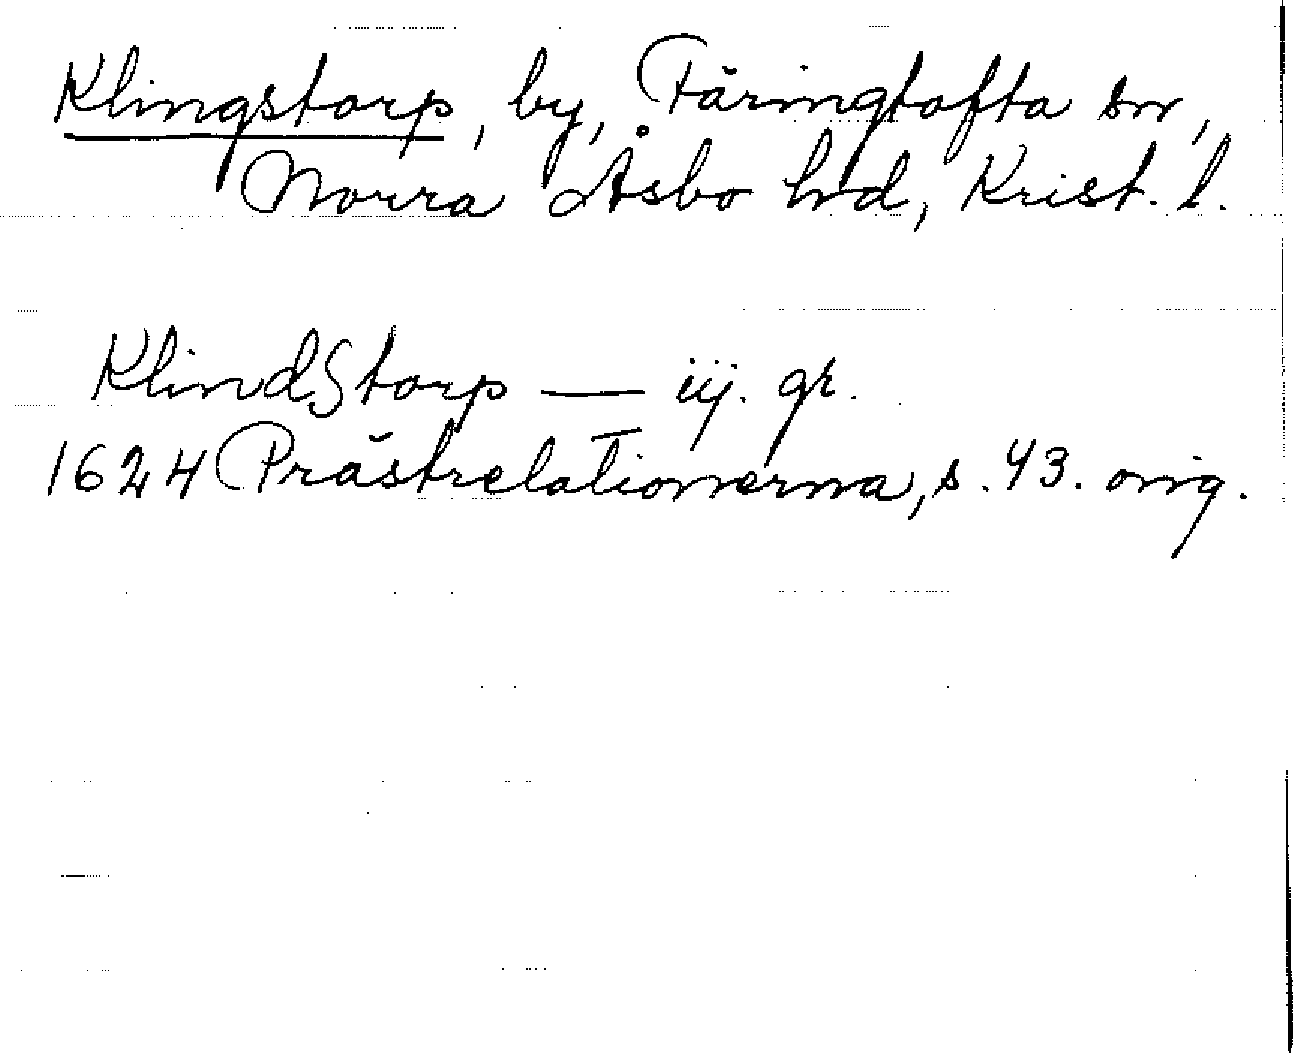 Klingstorp, by, Färingtofta sn,
Norra Åsbo hd, Krist. l.
Klindstorp — iij. gr.
1624 Prästrelationerna, s. 43. orig.